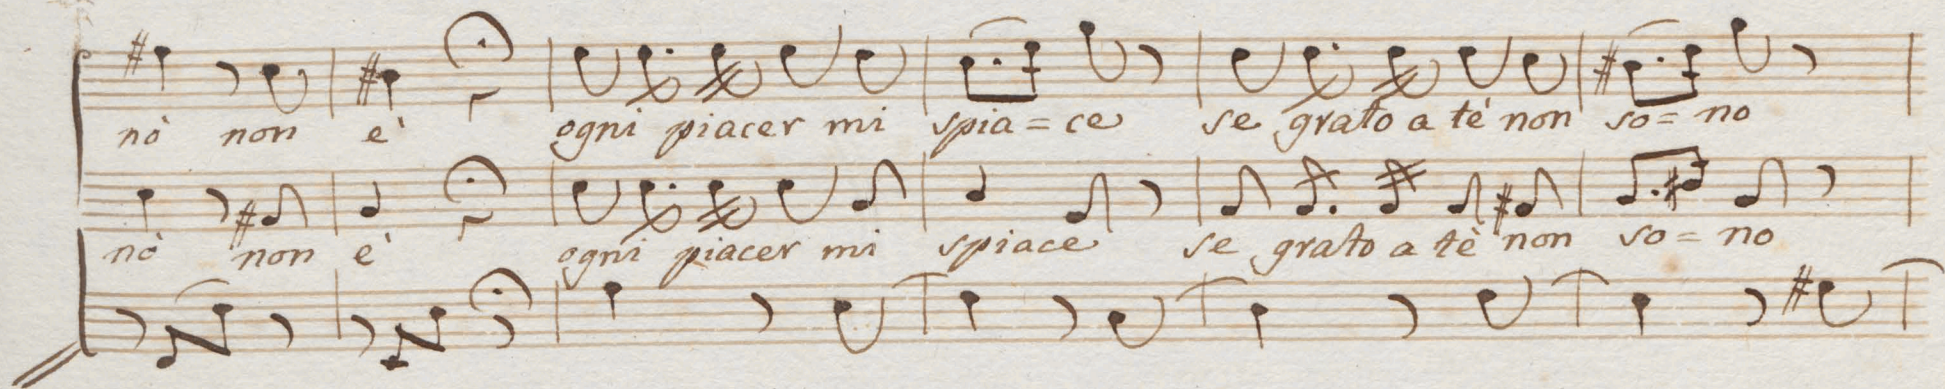 nò non è ogni piacer mi spia=ce se grato a tè non so=no
nò non è ogni piacer mi spiace se grato a tè non so=no